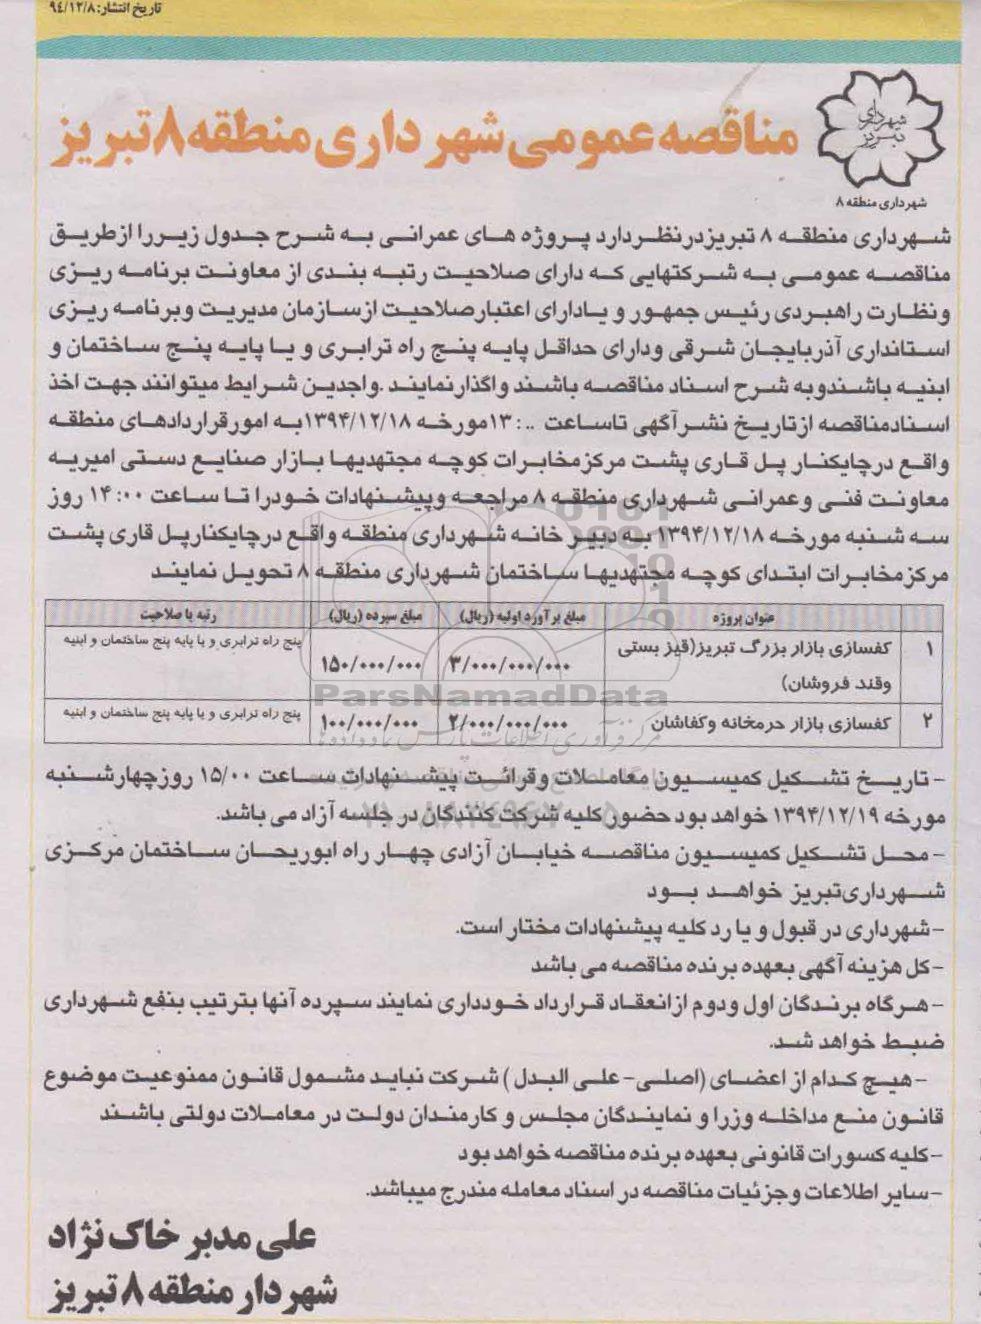 تاریخ انتشار: ۹٤/۱۲/۸
شهرداری
تبریز
شهرداری منطقه ۸
مناقصه عمومی شهرداری منطقه ۸ تبریز
شهرداری منطقه ۸ تبریزدرنظردارد پروژه های عمرانی به شرح جدول زیررا ازطریق
مناقصه عمومی به شرکتهایی که دارای صلاحیت رتبه بندی از معاونت برنامه ریزی
ونظارت راهبردی رئیس جمهور و یادارای اعتبارصلاحیت ازسازمان مدیریت وبرنامه ریزی
استانداری آذربایجان شرقی ودارای حداقل پایه پنج راه ترابری و یا پایه پنج ساختمان و
ابنیه باشندوبه شرح اسناد مناقصه باشند واگذارنمایند .واجدین شرایط میتوانند جهت اخذ
اسنادمناقصه ازتاریخ نشرآگهی تاساعت ..:۱۳مورخه ۱۳۹۴/۱۲/۱۸به امورقراردادهای منطقه
واقع درچایکنار پل قاری پشت مرکزمخابرات کوچه مجتهدیها بازار صنایع دستی امیریه
معاونت فنی وعمرانی شهرداری منطقه ۸ مراجعه وپیشنهادات خودرا تا ساعت ۱۴:۰۰ روز
سه شنبه مورخه ۱۳۹۴/۱۲/۱۸ به دبیر خانه شهرداری منطقه واقع درچایکنارپل قاری پشت
مرکزمخابرات ابتدای کوچه مجتهدیها ساختمان شهرداری منطقه ۸ تحویل نمایند
عنوان پروژه مبلغ برآورد اولیه (ریال) مبلغ سپرده (ریال) رتبه یا صلاحیت
۱ کفسازی بازار بزرگ تبریز(قیز بستی وقند فروشان) ۳/۰۰۰/۰۰۰/۰۰۰ ۱۵۰/۰۰۰/۰۰۰ پنج راه ترابری و یا پایه پنج ساختمان و ابنیه
۲ کفسازی بازار حرمخانه وکفاشان ۲/۰۰۰/۰۰۰/۰۰۰ ۱۰۰/۰۰۰/۰۰۰ پنج راه ترابری و یا پایه پنج ساختمان و ابنیه
ParsNamadData
- تاریخ تشکیل کمیسیون معاملات وقرائت پیشنهادات ساعت ۱۵/۰۰ روزچهارشنبه
مورخه ۱۳۹۴/۱۲/۱۹ خواهد بود حضورکلیه شرکت کنندگان در جلسه آزاد می باشد.
- محل تشکیل کمیسیون مناقصه خیابان آزادی چهار راه ابوریحان ساختمان مرکزی
شهرداری‌تبریز خواهد بود
- شهرداری در قبول و یا رد کلیه پیشنهادات مختار است.
- کل هزینه آگهی بعهده برنده مناقصه می باشد
- هرگاه برندگان اول ودوم ازانعقاد قرارداد خودداری نمایند سپرده آنها بترتیب بنفع شهرداری
ضبط خواهد شد.
- هیچ کدام از اعضای (اصلی- علی البدل ) شرکت نباید مشمول قانون ممنوعیت موضوع
قانون منع مداخله وزرا و نمایندگان مجلس و کارمندان دولت در معاملات دولتی باشند
- کلیه کسورات قانونی بعهده برنده مناقصه خواهد بود
- سایر اطلاعات وجزئیات مناقصه در اسناد معامله مندرج میباشد.
علی مدبر خاک نژاد
شهردار منطقه ۸ تبریز